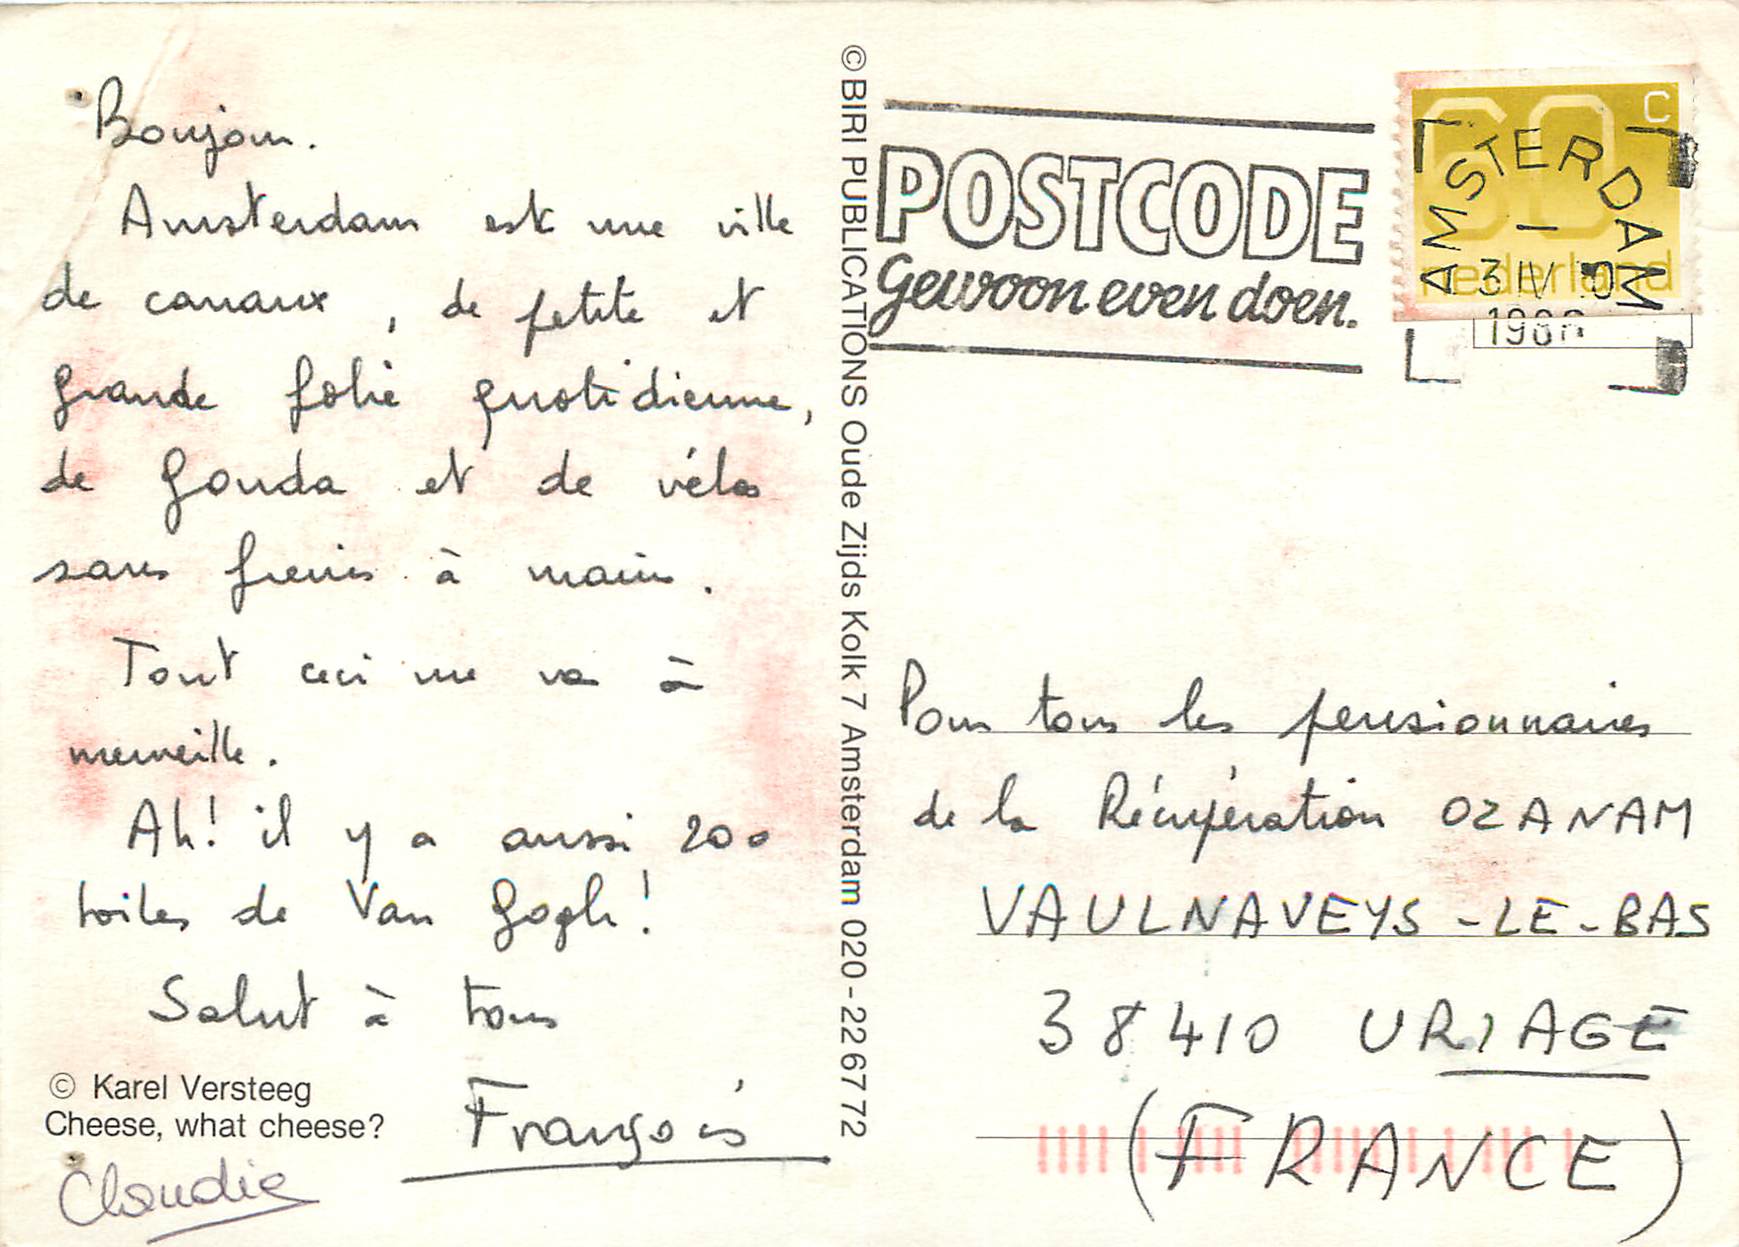 Bonjour.
Amsterdam est une ville
de canaux, de petite et
grande folie quotidienne,
de Gouda et de vélos
sans freins à mains.
Tout ceci me va à
merveille.
Ah! il y a aussi 200
toiles de Van Gogh!
Salut à tous
© Karel Versteeg
Cheese, what cheese?
François
Claudie
© BIRI PUBLICATIONS Oude Zijds Kolk 7 Amsterdam 020-2267772
POSTCODE
Gewoon even doen.
60 C
nederland
AMSTERDAM
3 IV
Pour tous les pensionnaires
de la Récupération OZANAM
VAULNAVEYS-LE-BAS
38410 URIAGE
(FRANCE)